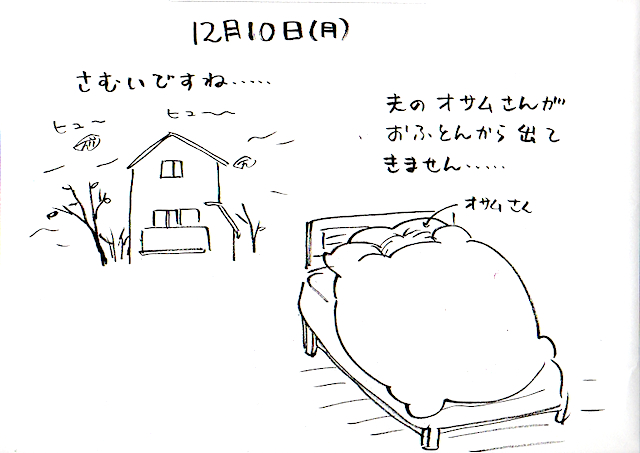 12月10日(月)
さむいですね……
ヒュ〜
ヒュ〜〜
夫のオサムさんが
おふとんから出て
きません……
オサムさん